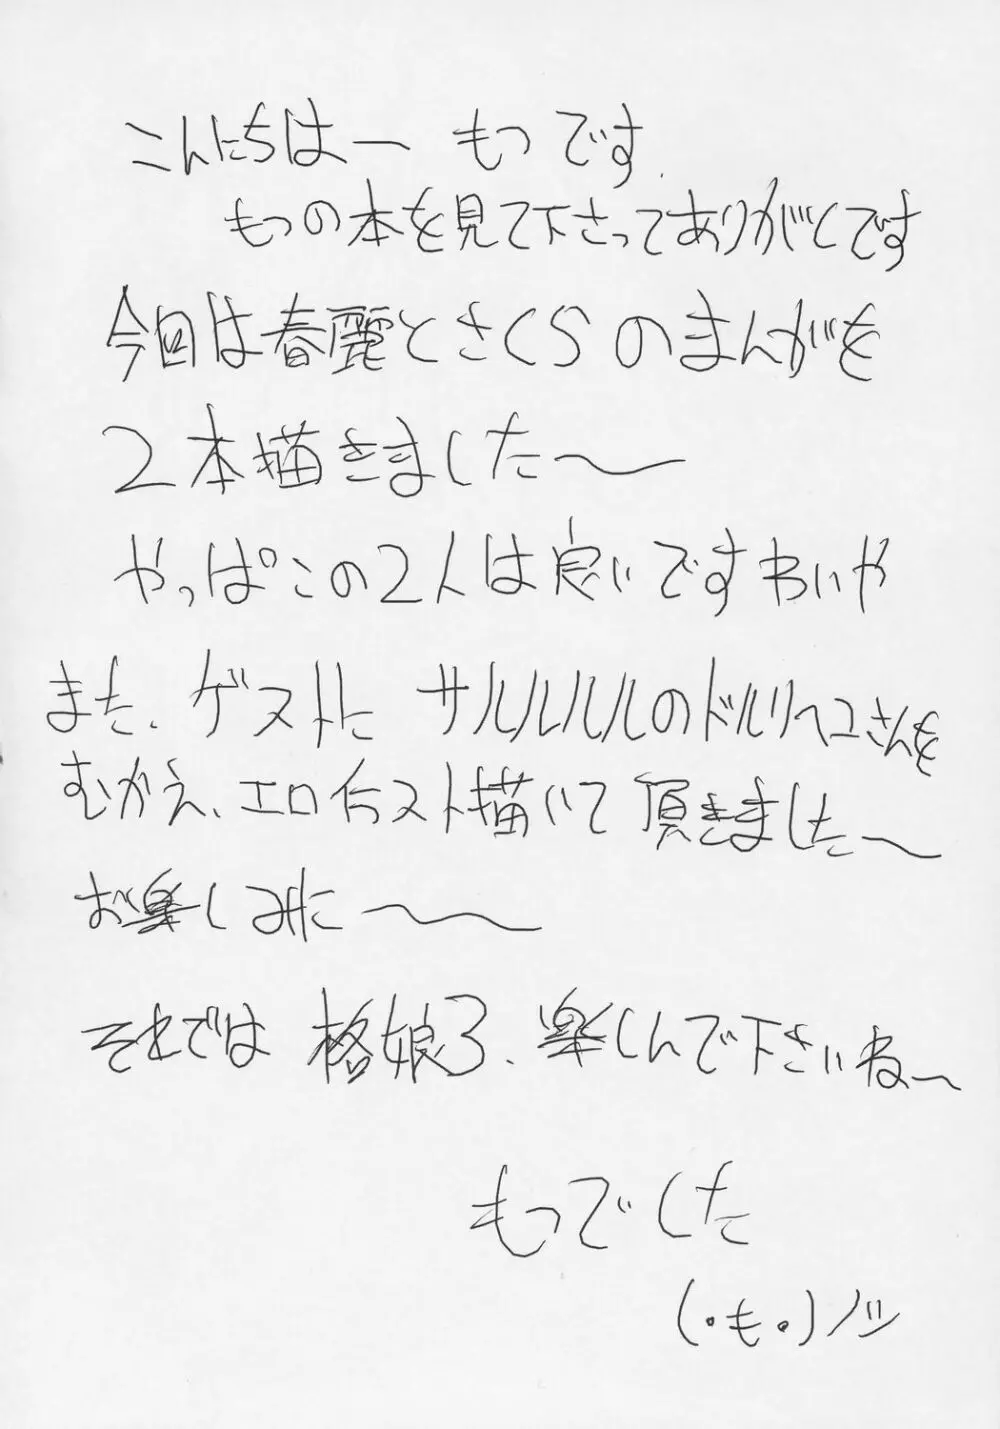 こんにちはー もつ です
もつの本を見て下さってありがてくです
今回は春麗とさくらのまんがを
2本描きました〜
やっぱこの2人は良いですわいや
また、ゲストに サルルルルのドルリヘユさんを
むかえ、エロイラスト描いて頂きました〜
お楽しみに〜〜
それでは 格娘3、楽しんで下さいね〜
もつでした
(・も・)ノシ